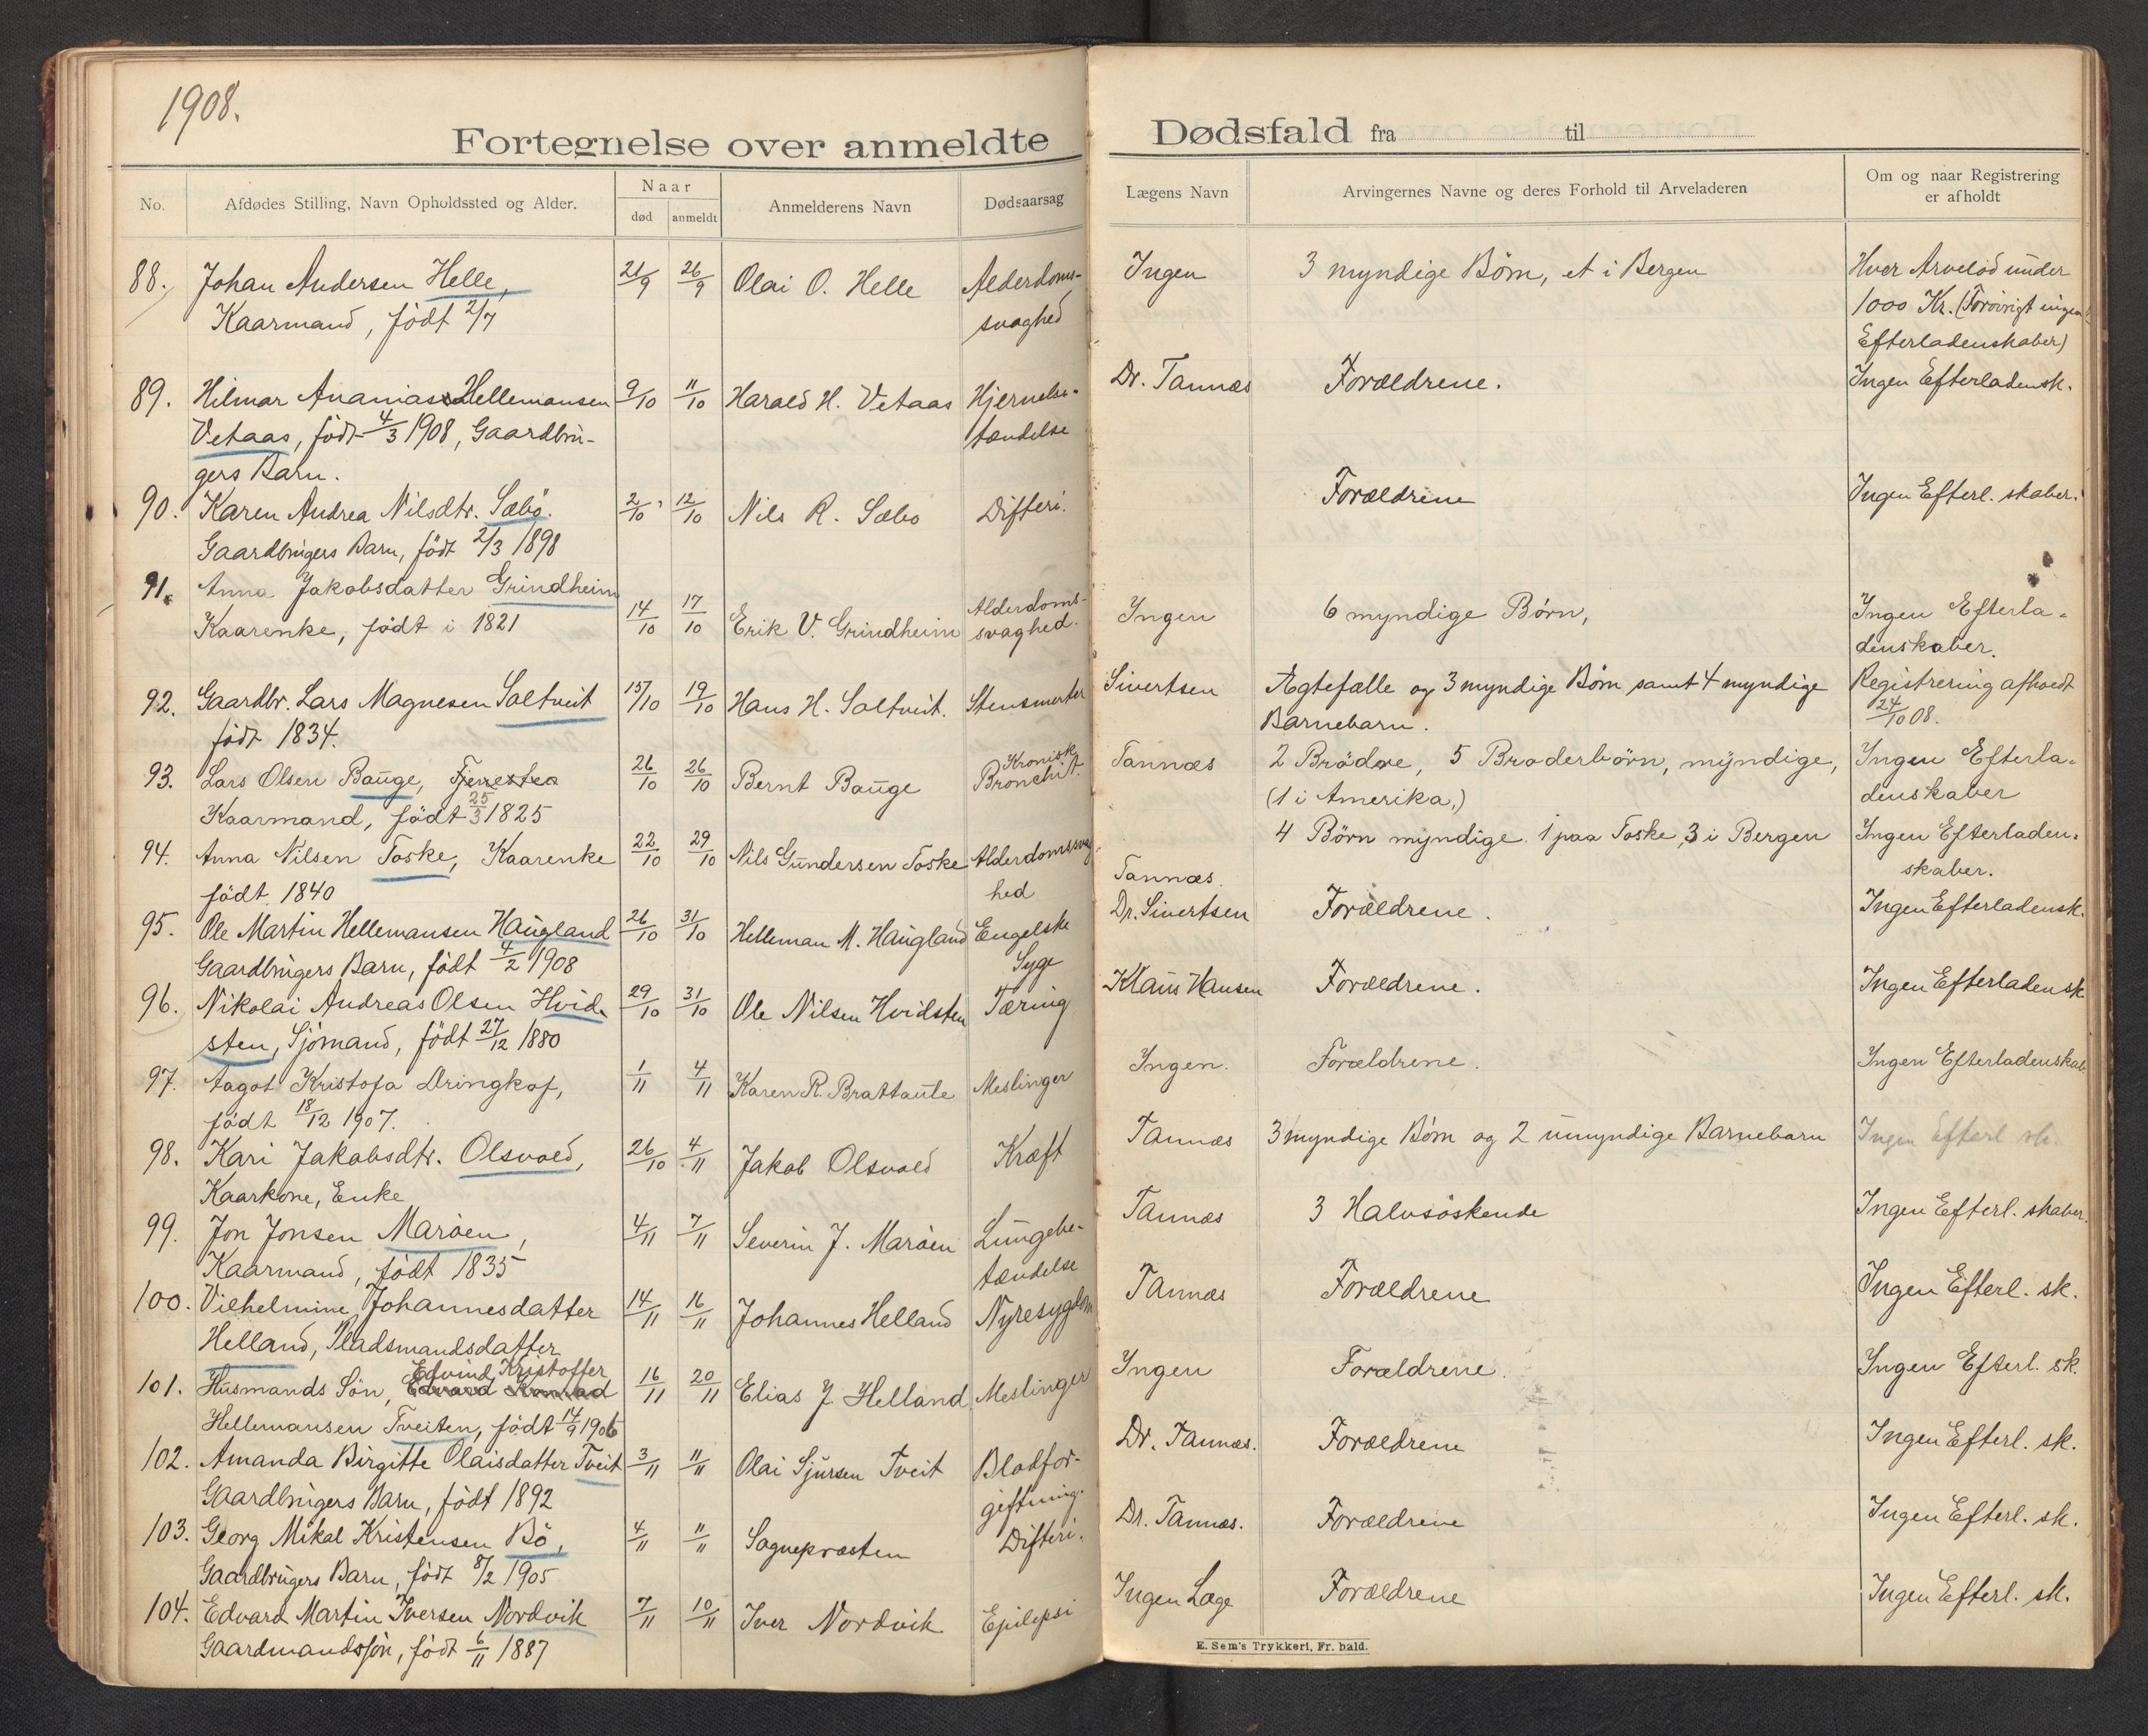 1908.
Fortegnelse over anmeldte Dødsfald fra til
No. Afdødes Stilling, Navn Opholdssted og Alder. Naar død anmeldt Anmelderens Navn Dødsaarsag Lægens Navn Arvingernes Navne og deres Forhold til Arveladeren Om og naar Registrering er afholdt
88. Johan Andersen Helle, 21/9 26/9 Olai O. Helle Alderdoms- Ingen 3 myndige Börn, et i Bergen Hver Arvelod under
Kaarmand, födt 2/7 svaghed 1000 Kr. (Forövrigt ingen
Efterladenskaber)
89. Hilmar Ananias Hellemansen 9/10 11/10 Harald H. Vetaas Hjernebe- Dr. Tannæs Forældrene. Ingen Efterladensk.
Vetaas, födt 4/3 1908, Gaardbru- tændelse
gers Barn.
90. Karen Andrea Nilsdtr. Sæbö. 2/10 12/10 Nils R. Sæbö Difteri. Forældrene Ingen Efterl. skaber.
Gaardbrugers Barn, födt 2/3 1898
91. Anna Jakobsdatter Grindheim 14/10 17/10 Erik V. Grindheim Alderdoms- Ingen 6 myndige Börn, Ingen Efterla-
Kaarenke, födt i 1821 svaghed. denskaber.
92. Gaardbr. Lars Magnesen Saltveit 15/10 19/10 Hans H. Saltveit. Stensmerter Sivertsen Ægtefælle og 3 myndige Börn samt 4 myndige Registrering afholdt
födt 1834. Barnebarn. 24/10 08.
93. Lars Olsen Bauge, Tjenester 26/10 26/10 Bernt Bauge Kronisk Bronchit. Tannæs 2 Brödre, 5 Broderbörn, myndige, Ingen Efterla-
Kaarmand, födt 25/3 1825 (1 i Amerika,) denskaber
94. Anna Nilsen Toske, Kaarenke 22/10 29/10 Nils Gundersen Toske Alderdomssvag- Tannæs. 4 Börn myndige 1 paa Toske, 3 i Bergen Ingen Efterladen-
födt 1840 hed skaber.
95. Ole Martin Hellemansen Haugland 26/10 31/10 Helleman M. Haugland Engelske Dr. Sivertsen Forældrene. Ingen Efterladensk.
Gaardbrugers Barn, födt 4/2 1908 Syge
96. Nikolai Andreas Olsen Hvid- 29/10 31/10 Ole Nilsen Hvidsten Tæring Klaus Hansen Forældrene. Ingen Efterladensk
sten, Sjömand, födt 27/12 1880
97. Aagot Kristofa Dringkof, 1/11 4/11 Karen R. Brattaule Meslinger Ingen. Forældrene. Ingen Efterladenskab.
födt 18/12 1907.
98. Kari Jakobsdtr. Olsvold, 26/10 4/11 Jakob Olsvold Kræft Tannæs 3 myndige Börn og 2 umyndige Barnebarn Ingen Efterl sk.
Kaarkone, Enke
99. Jon Jonsen Maröen, 4/11 7/11 Severin J. Maröen Lungebe- Tannæs 3 Halvsöskende Ingen Efterl. skaber.
Kaarmand, födt 1835 tændelse
100. Vilhelmine Johannesdatter 14/11 16/11 Johannes Helland Nyresygdom Tannæs Forældrene Ingen Efterl. sk.
Helland, Pladsmandsdatter
Edvind Kristoffer
101. Husmands Sön, Edvard Konrad 16/11 20/11 Elias J. Helland Meslinger Ingen Forældrene. Ingen Efterl. sk.
Hellemansen Tveiten, födt 14/9 1906
102. Amanda Birgitte Olaisdatter Tveit 3/11 11/11 Olai Sjursen Tveit Blodfor- Dr. Tannæs. Forældrene Ingen Efterl. sk.
Gaardbrugers Barn, födt 1892 giftning.
103. Georg Mikal Kristensen Bö, 4/11 11/11 Sognepræsten Difteri. Dr. Tannæs. Forældrene Ingen Efterl. sk.
Gaardbrugers Barn, födt 8/2 1905
104. Edvard Martin Iversen Nordvik 7/11 10/11 Iver Nordvik Epilepsi Ingen Læge Forældrene Ingen Efterl. sk.
Gaardmandssön, födt 6/11 1887
E. Sem's Trykkeri, Fr. hald.